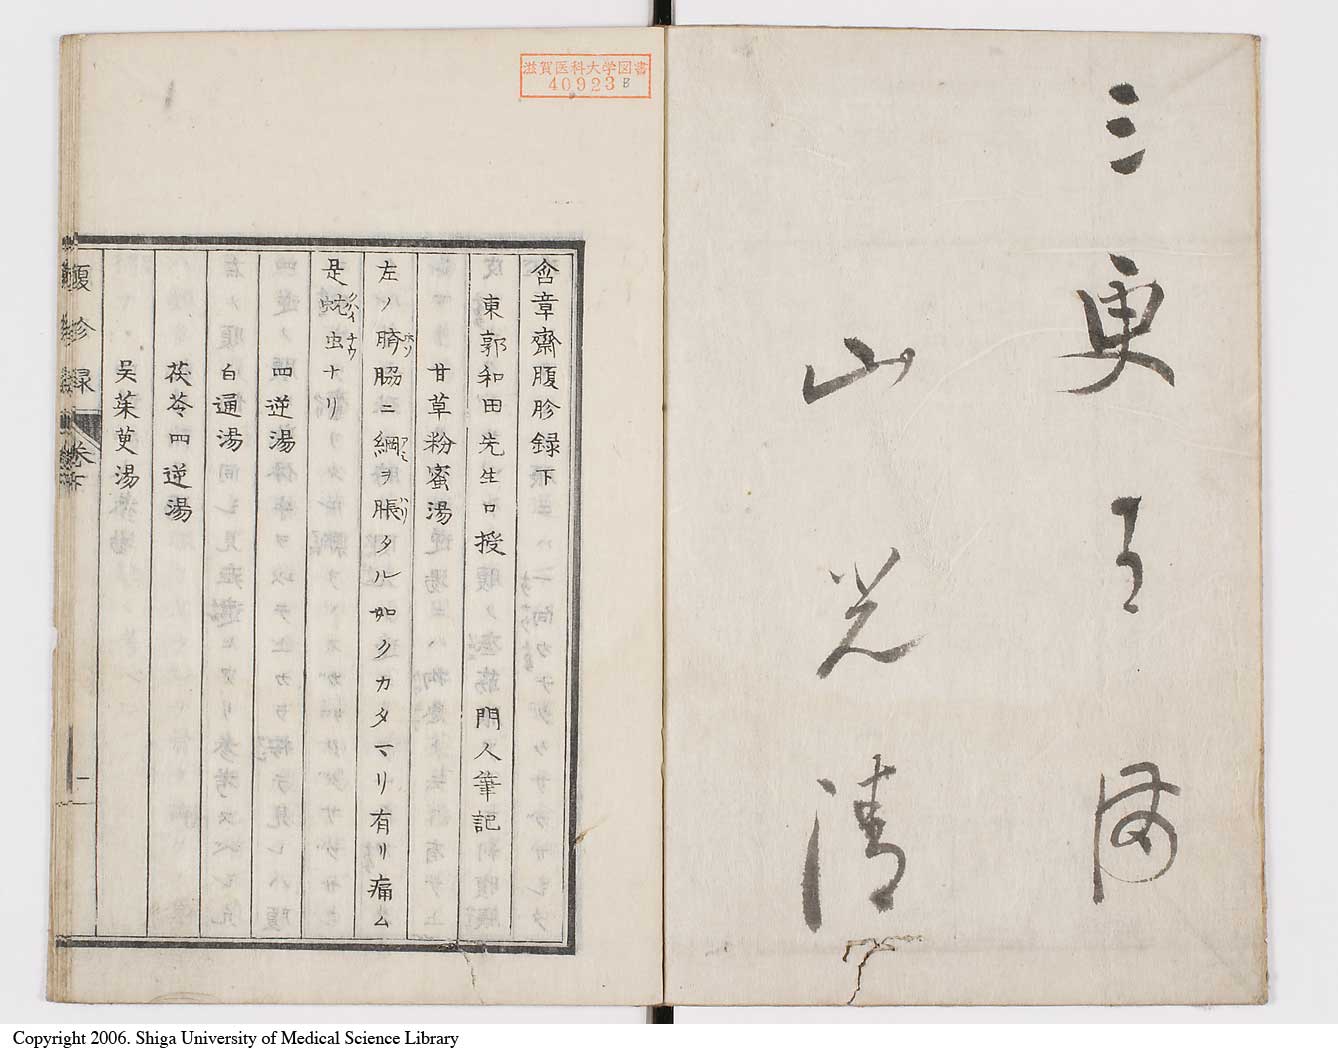 三更月照
山光清
滋賀医科大学図書
40923 B
含章齋腹胗録下
東郭和田先生口授
門人筆記
甘草粉蜜湯
左ノ臍脇ニ綱ヲ脹タル如クカタマリ有リ痛ム
是蛇虫ナリ
四逆湯
白通湯
茯苓四逆湯
吳茱萸湯
腹胗録
卷下
一
Copyright 2006. Shiga University of Medical Science Library